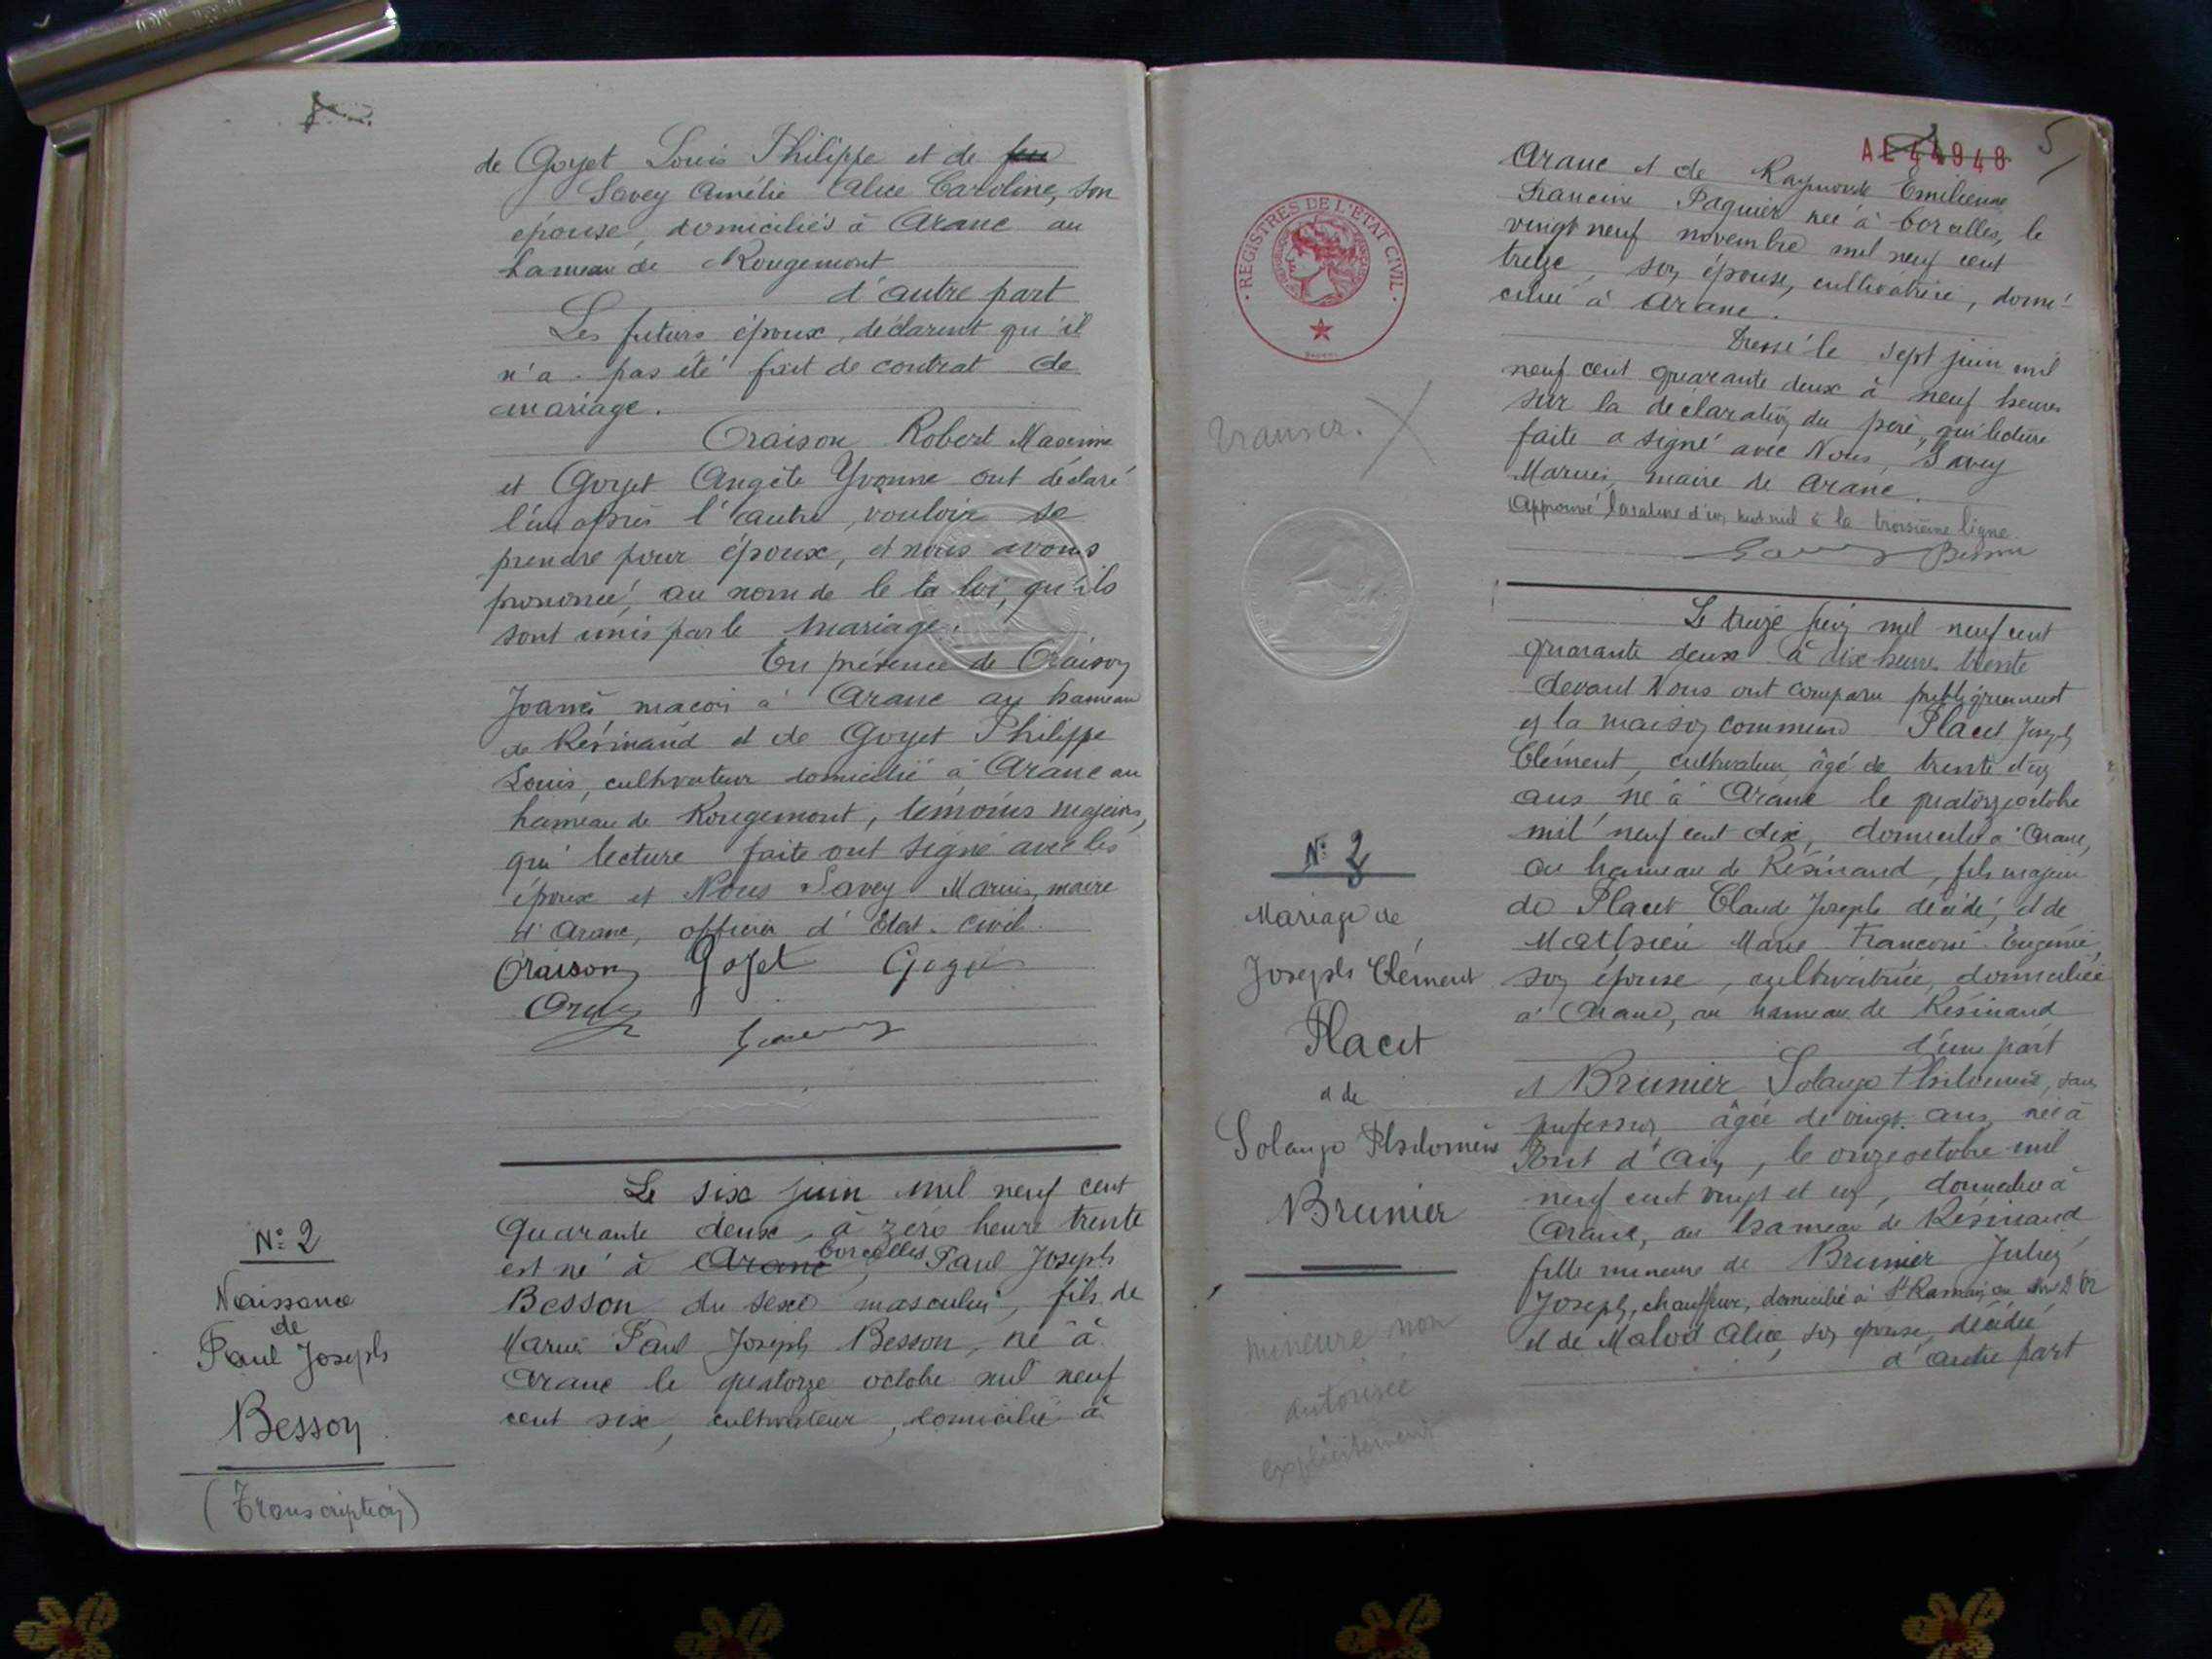 de Goyet Louis Philippe et de feu
Savey Amélie Alice Caroline, son
épouse, domiciliés à Aranc au
hameau de Rougemont
d'autre part
Les futurs époux, déclarent qu'il
n'a pas été fait de contrat de
mariage.
Oraison Robert Maxime
et Goyet Angèle Yvonne ont déclaré
l'un après l'autre, vouloir se
prendre pour époux, et nous avons
prononcé, au nom de le la loi, qu'ils
sont unis par le mariage.
En présence de Oraison
Joanès maçon à Aranc au hameau
de Résinand et de Goyet Philippe
Louis, cultivateur domicilié à Aranc au
hameau de Rougemont, témoins majeurs,
qui lecture faite ont signé avec les
époux et Nous Savey Marius, maire
d'Aranc, officier d'Etat-Civil.
Oraison Goyet Goyet
N° 2
Naissance
de
Paul Joseph
Besson
(Transcription)
Le six juin mil neuf cent
quarante deux, à zéro heure trente
est né à Aranc Corcelles, Paul Joseph
Besson du sexe masculin, fils de
Marius Paul Joseph Besson, né à
Aranc le quatorze octobre mil neuf
cent six, cultivateur, domicilié à
AL 44948
5
REGISTRES DE L'ETAT CIVIL
Aranc et de Raymonde Emilienne
Francine Paquier née à Corcelles, le
vingt neuf novembre mil neuf cent
treize, son épouse, cultivatrice, domi-
ciliée à Aranc.
Dressé le sept juin mil
neuf cent quarante deux à neuf heures
sur la déclaration du père, qui lecture
faite a signé avec Nous, Savey
Marius, maire de Aranc.
Approuvé la rature d'un mot nul à la troisième ligne.
Savey Besson
transcr. X
N° 3
Mariage de
Joseph Clément
Placet
et de
Solange Philomène
Brunier
mineure non
autorisée
explicitement
Le treize juin mil neuf cent
quarante deux à dix heures trente
devant Nous ont comparu publiquement
en la maison commune Placet Joseph
Clément, cultivateur âgé de trente et un
ans né à Aranc le quatorze octobre
mil neuf cent dix, domicilié à Aranc,
au hameau de Résinand, fils majeur
de Placet Claude Joseph décédé, et de
Mathieu Marie Françoise Eugénie,
son épouse, cultivatrice, domiciliée
à Aranc, au hameau de Résinand
d'une part
et Brunier Solange Philomène, sans
profession âgée de vingt ans, née à
Pont d'Ain, le onze octobre mil
neuf cent vingt et un, domiciliée à
Aranc, au hameau de Résinand
fille mineure de Brunier Julien
Joseph, chauffeur, domicilié à St Romain
et de Malod Alice, son épouse, décédée
d'autre part